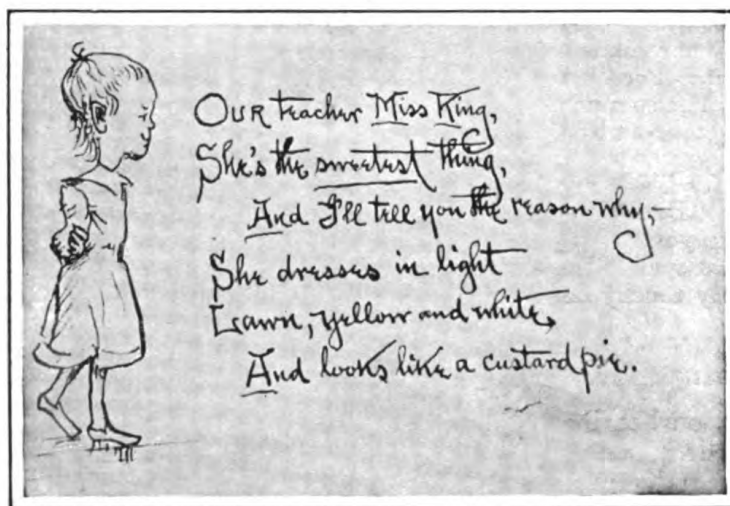 Our teacher Miss King,
She's the sweetest thing,
And I'll tell you the reason why,—
She dresses in light
Lawn, yellow and white,
And looks like a custard pie.